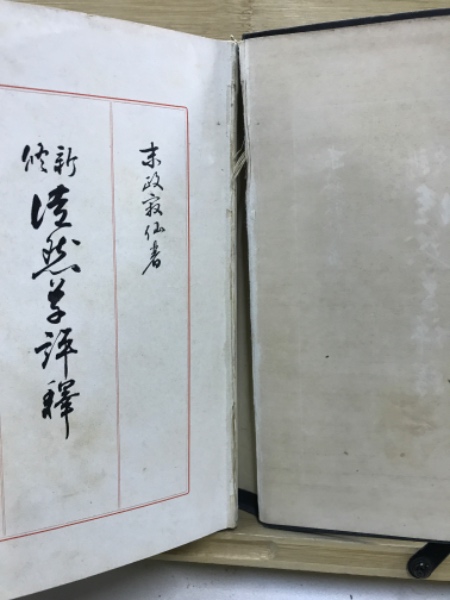 末政寂仙著
新修
徒然草評釋